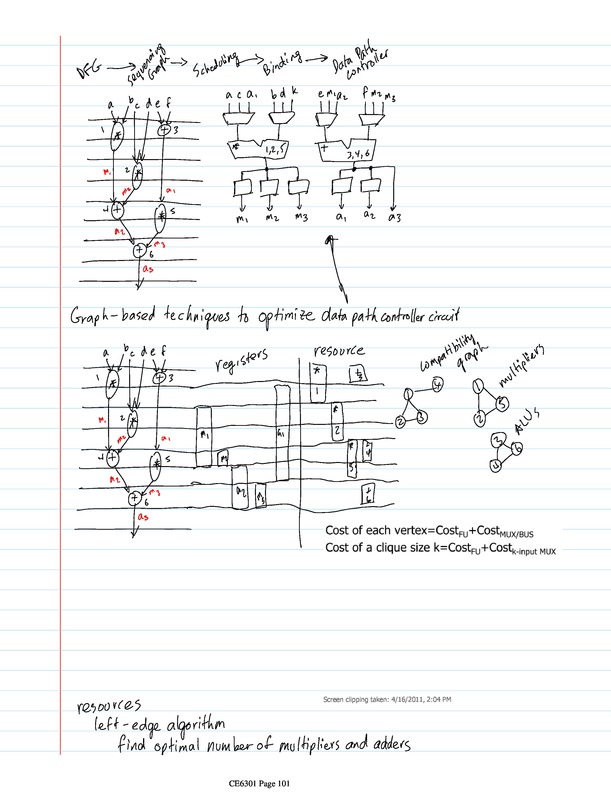 DFG → sequencing Graph → Scheduling → Binding → Data Path controller
a b c d e f
a c a1 b d k e m1 a2 f m2 m3
1 * + 3
* 1,2,5 + 3,4,6
m1 2 * a1
m2
4 + * 5
m1 m2 m3 a1 a2 a3
a2 m3
+ 6
a3
Graph-based techniques to optimize data path controller circuit
a b c d e f registers resource compatibility graph multipliers ALUs
1 * + 3
m1 2 * a1
m2
4 + * 5
a2 m3
+ 6
a3
m1 a1
a2
* 1
* 2
* 5
+ 6
1 4
2 3
1
2 5
3
4 6
Cost of each vertex=CostFU+CostMUX/BUS
Cost of a clique size k=CostFU+Costk-input MUX
Screen clipping taken: 4/16/2011, 2:04 PM
resources
left-edge algorithm
find optimal number of multipliers and adders
CE6301 Page 101